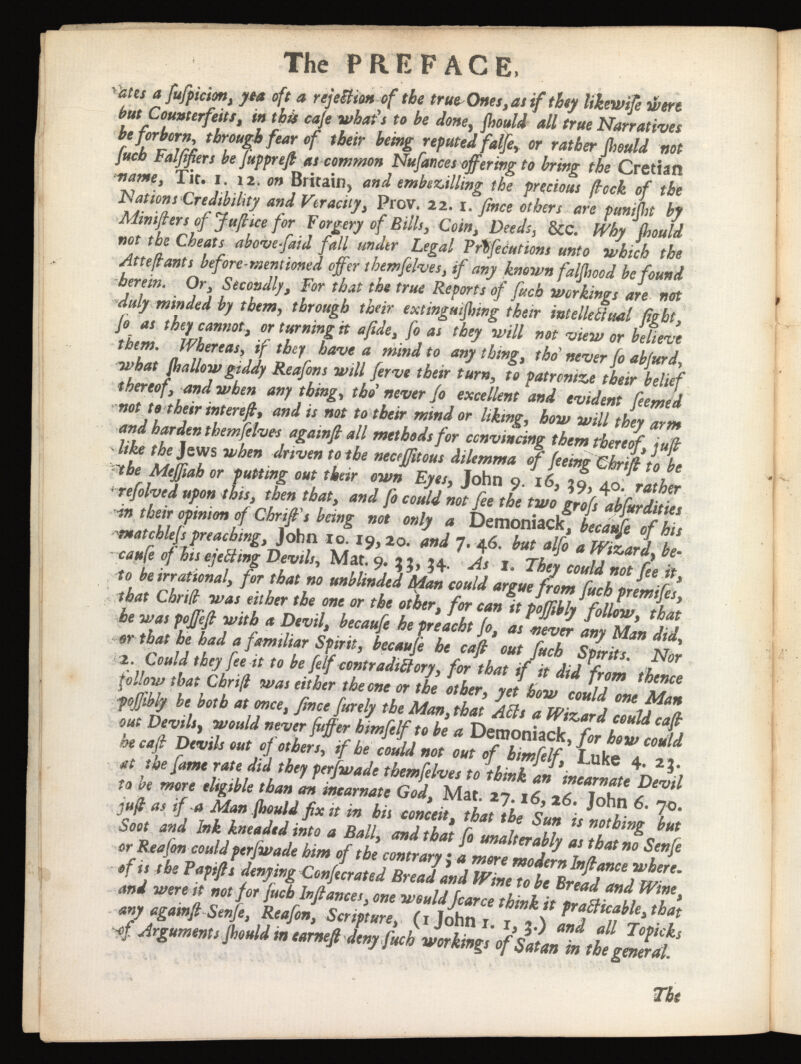 The PREFACE,
ates a ſuſpicion, yea oft a rejection of the true Ones, as if they likewiſe were
but Counterfeits, in this caſe what's to be done, ſhould all true Narratives
be forborn, through fear of their being reputed falſe, or rather ſhould not
ſuch Falſifiers be ſuppreſt as common Nuſances offering to bring the Cretian
name, Tit. 1. 12. on Britain, and embezilling the precious ſtock of the
Nations Credibility and Veracity, Prov. 22. 1. ſince others are puniſht by
Miniſters of Juſtice for Forgery of Bills, Coin, Deeds, &c. Why ſhould
not the Cheats above-ſaid fall under Legal Proſecutions unto which the
Atteſtants before-mentioned offer themſelves, if any known falſhood be found
herein. Or, Secondly, For that the true Reports of ſuch workings are not
duly minded by them, through their extinguiſhing their intellectual ſight,
ſo as they cannot, or turning it aſide, ſo as they will not view or believe
them. Whereas, if they have a mind to any thing, tho' never ſo abſurd,
what ſhallow giddy Reaſons will ſerve their turn, to patronize their belief
thereof, and when any thing, tho' never ſo excellent and evident ſeemed
not to their intereſt, and is not to their mind or liking, how will they arm
and harden themſelves againſt all methods for convincing them thereof, juſt
like the Jews when driven to the neceſſitous dilemma of ſeeing Chriſt to be
the Meſſiah or putting out their own Eyes, John 9. 16, 39, 40. rather
reſolved upon this, then that, and ſo could not ſee the two groſs abſurdities
in their opinion of Chriſt's being not only a Demoniack, becauſe of his
matchleſs preaching, John 10. 19, 20. and 7. 46. but alſo a Wizard, be-
cauſe of his ejecting Devils, Mat. 9. 33, 34. As 1. They could not ſee it,
to be irrational, for that no unblinded Man could argue from ſuch premiſes,
that Chriſt was either the one or the other, for can it poſſibly follow, that
he was poſſeſt with a Devil, becauſe he preacht ſo, as never any Man did,
or that he had a familiar Spirit, becauſe he caſt out ſuch Spirits. Nor
2. Could they ſee it to be ſelf contradictory, for that if it did from thence
follow that Chriſt was either the one or the other, yet how could one Man
poſſibly be both at once, ſince ſurely the Man, that Acts a Wizard could caſt
out Devils, would never ſuffer himſelf to be a Demoniack, for how could
he caſt Devils out of others, if he could not out of himſelf, Luke 4. 23.
at the ſame rate did they perſwade themſelves to think an incarnate Devil
to be more eligible than an incarnate God, Mat. 27. 16, 26. John 6. 70.
juſt as if a Man ſhould fix it in his conceit, that the Sun is nothing but
Soot and Ink kneaded into a Ball, and that ſo unalterably as that no Senſe
or Reaſon could perſwade him of the contrary; a more modern Inſtance where-
of is the Papiſts denying Conſecrated Bread and Wine to be Bread and Wine,
and were it not for ſuch Inſtances, one would ſcarce think it practicable, that
any againſt Senſe, Reaſon, Scripture, (1 John 1. 1, 3.) and all Topicks
of Arguments ſhould in earneſt deny ſuch workings of Satan in the general.
The